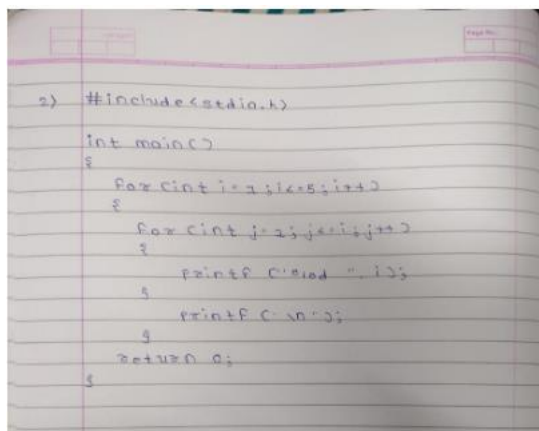 Page No.
2) #include<stdio.h>
int main()
{
for (int i=1;i<=5;i++)
{
for (int j=1; j<=i; j++)
{
printf ("%d ", i);
}
printf ("\n");
}
return 0;
}